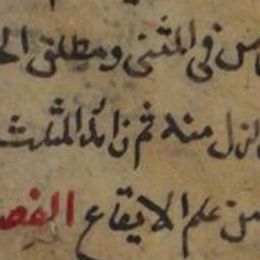 في المثنى ومطلق
انزل منه ثم زائد المثلث
من علم الايقاع الفصل